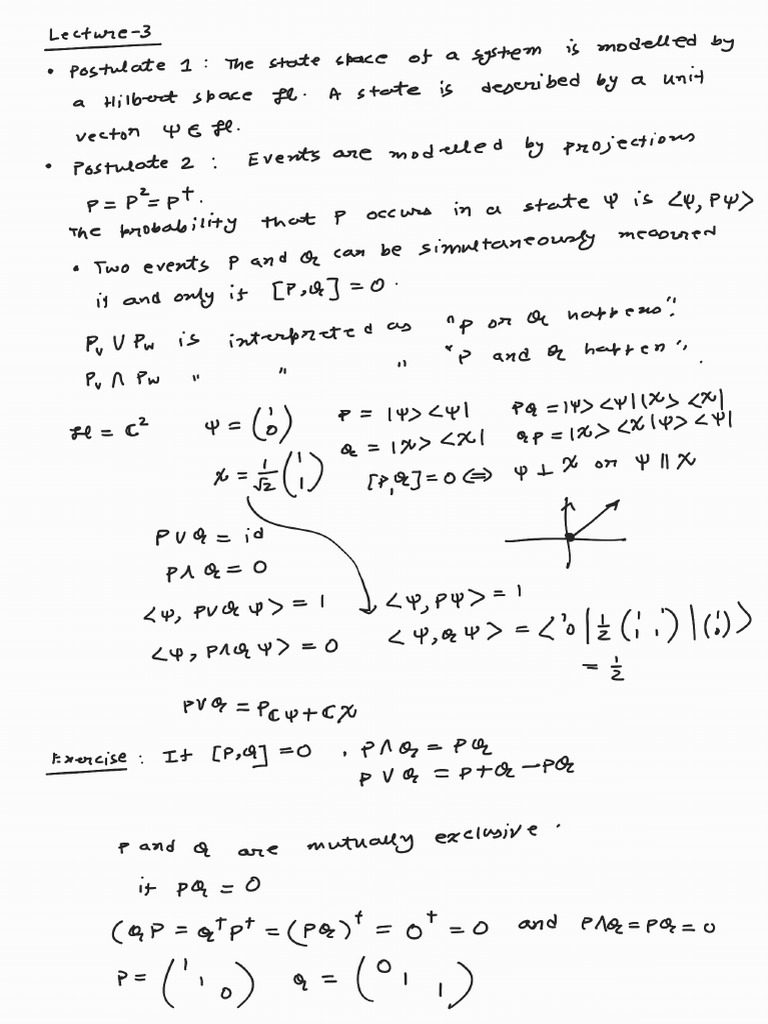 Lecture-3
• Postulate 1 : The state space of a system is modelled by
a Hilbert space ℋ. A state is described by a unit
vector Ψ ∈ ℋ.
• Postulate 2 : Events are modelled by projections
P = P² = P†.
The probability that P occurs in a state Ψ is <Ψ, PΨ>
• Two events P and Q can be simultaneously measured
if and only if [P,Q] = 0.
P_V ∪ P_W is interpreted as "P or Q happens".
P_V ∩ P_W " " " "P and Q happen".
ℋ = ℂ² Ψ = (1 0) P = |Ψ> <Ψ| PQ = |Ψ> <Ψ|χ> <χ|
χ = 1/√2 (1 1) Q = |χ> <χ| QP = |χ> <χ|Ψ> <Ψ|
[P,Q] = 0 ⇔ Ψ ⊥ χ or Ψ ∥ χ
P ∪ Q = id
P ∧ Q = 0
<Ψ, P∪Q Ψ> = 1 <Ψ, PΨ> = 1
<Ψ, P∧Q Ψ> = 0 <Ψ, QΨ> = <1 0 | 1/2 (1 1 1 1) | (1 0)>
= 1/2
P∪Q = P_ℂΨ + ℂχ
Exercise : If [P,Q] = 0 , P∧Q = PQ
P ∪ Q = P + Q − PQ
P and Q are mutually exclusive .
if PQ = 0
(QP = Q†P† = (PQ)† = 0† = 0 and P∧Q = PQ = 0
P = (1 1 0) Q = (0 1 1)